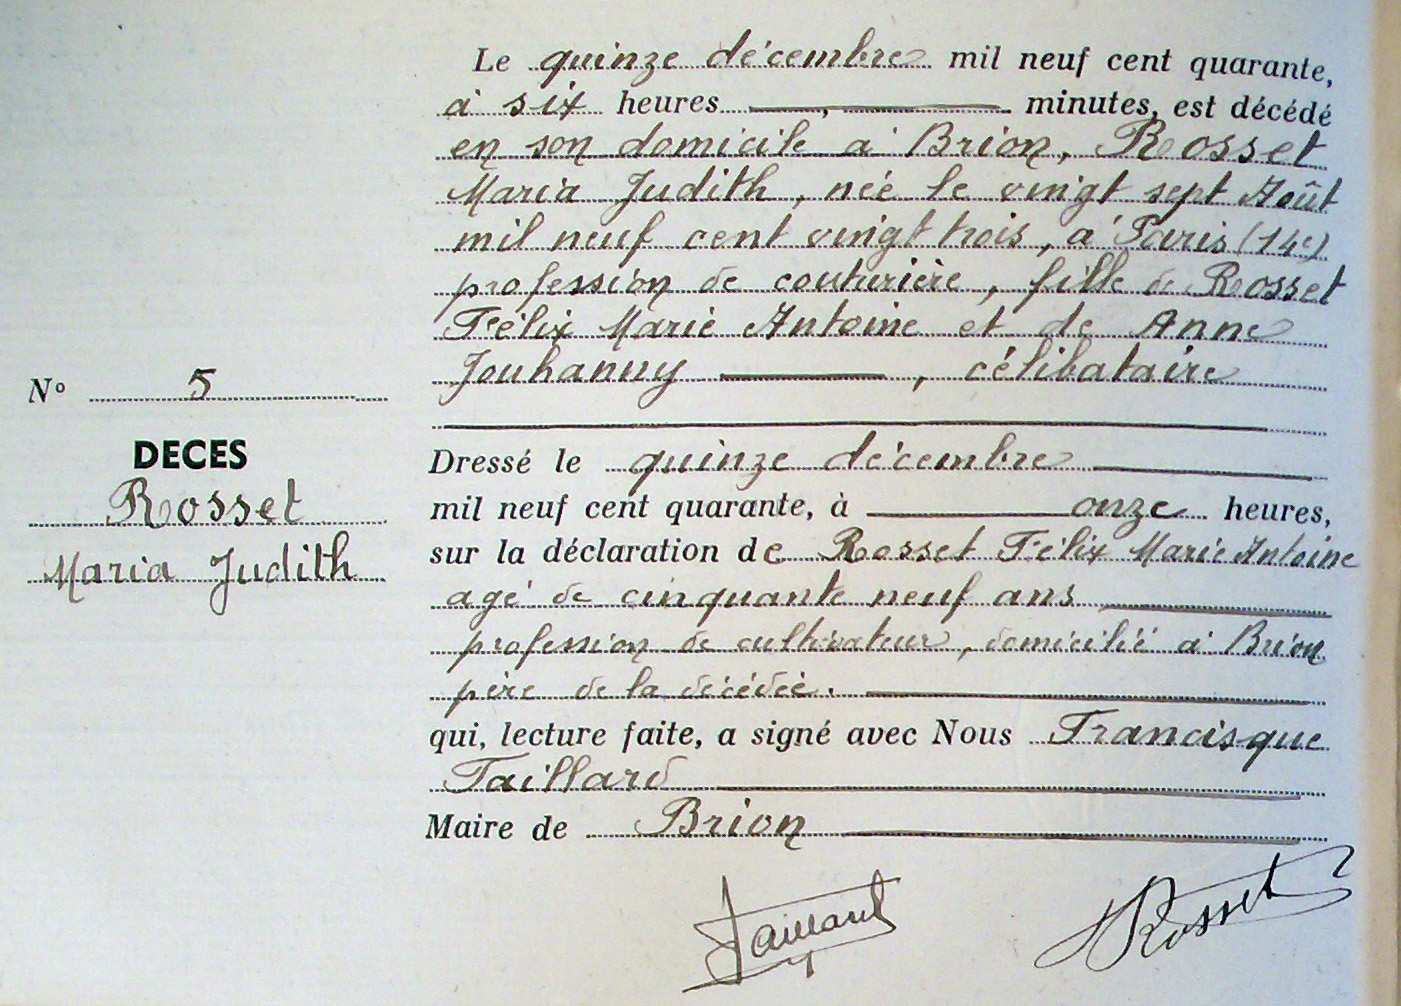 Le quinze décembre mil neuf cent quarante,
à six heures , minutes, est décédé
en son domicile à Brion, Rosset
Maria Judith, née le vingt sept Août
mil neuf cent vingt trois, à Paris (14e)
profession de couturière, fille de Rosset
Félix Marie Antoine et de Anne
Jouhanny , célibataire
N° 5
DECES
Rosset
Maria Judith
Dressé le quinze décembre
mil neuf cent quarante, à onze heures,
sur la déclaration de Rosset Félix Marie Antoine
agé de cinquante neuf ans
profession de cultivateur, domicilié à Brion
père de la décédée.
qui, lecture faite, a signé avec Nous Francisque
Taillard
Maire de Brion
Taillard
Rosset